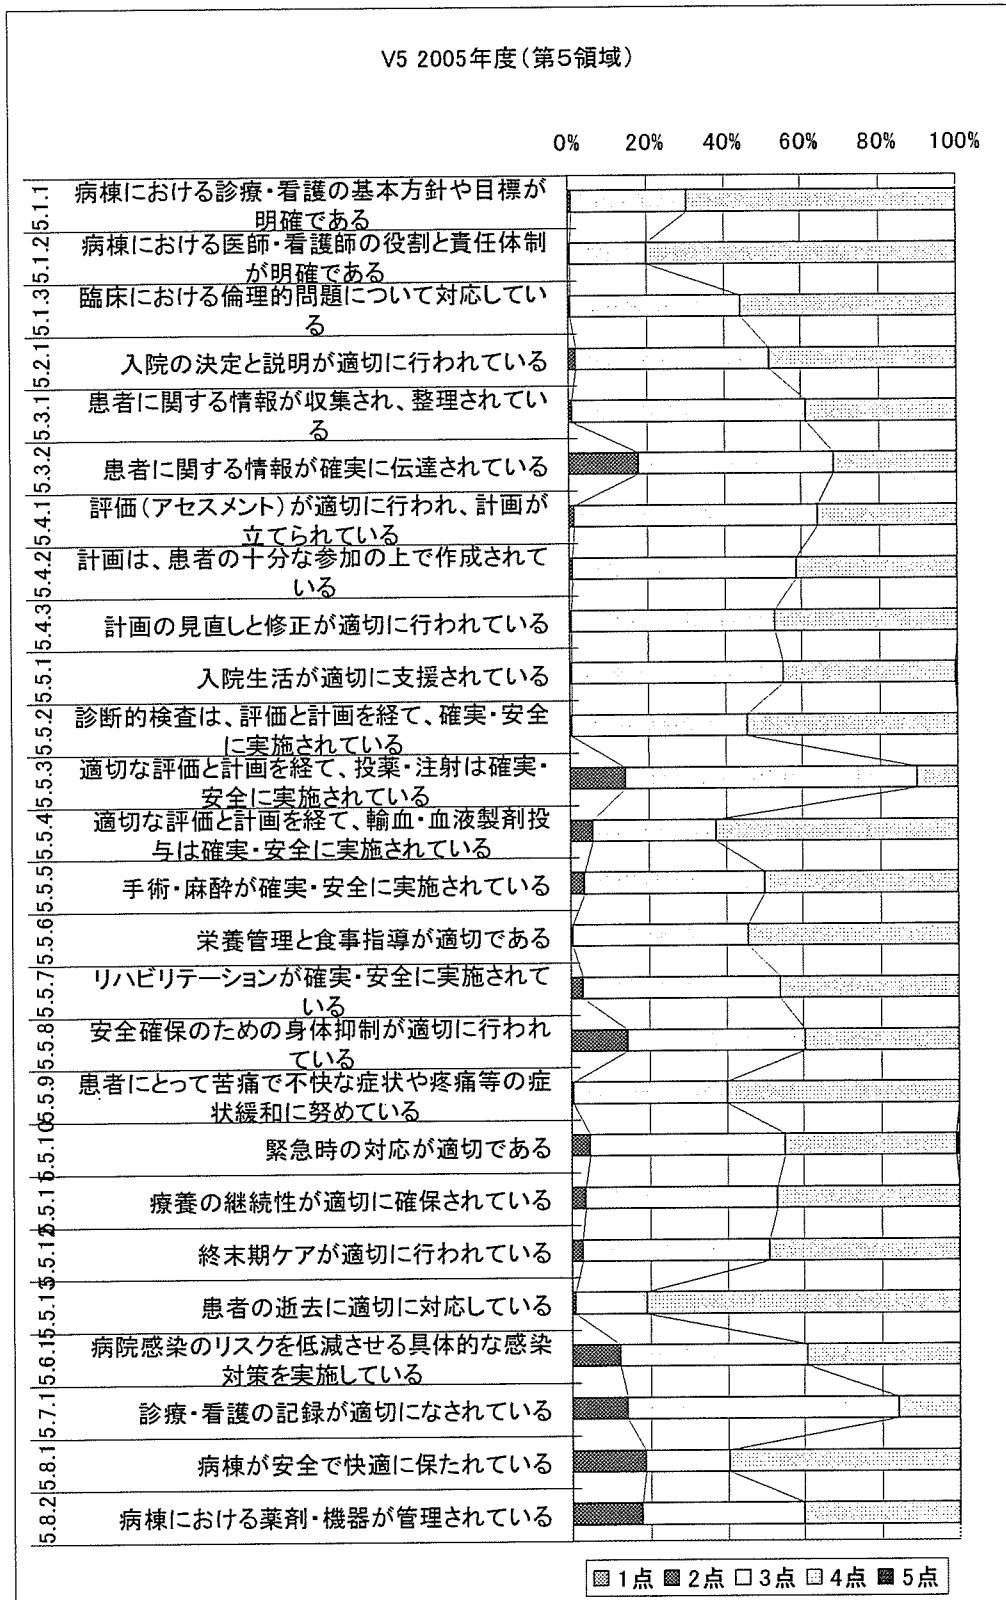 V5 2005年度(第5領域)
0% 20% 40% 60% 80% 100%
5.1.1
病棟における診療・看護の基本方針や目標が
明確である
5.1.2
病棟における医師・看護師の役割と責任体制
が明確である
5.1.3
臨床における倫理的問題について対応してい
る
5.2.1
入院の決定と説明が適切に行われている
5.3.1
患者に関する情報が収集され、整理されてい
る
5.3.2
患者に関する情報が確実に伝達されている
5.4.1
評価(アセスメント)が適切に行われ、計画が
立てられている
5.4.2
計画は、患者の十分な参加の上で作成されて
いる
5.4.3
計画の見直しと修正が適切に行われている
5.5.1
入院生活が適切に支援されている
5.5.2
診断的検査は、評価と計画を経て、確実・安全
に実施されている
5.5.3
適切な評価と計画を経て、投薬・注射は確実・
安全に実施されている
5.5.4
適切な評価と計画を経て、輸血・血液製剤投
与は確実・安全に実施されている
5.5.5
手術・麻酔が確実・安全に実施されている
5.5.6
栄養管理と食事指導が適切である
5.5.7
リハビリテーションが確実・安全に実施されて
いる
5.5.8
安全確保のための身体抑制が適切に行われ
ている
5.5.9
患者にとって苦痛で不快な症状や疼痛等の症
状緩和に努めている
5.5.10
緊急時の対応が適切である
5.5.11
療養の継続性が適切に確保されている
5.5.12
終末期ケアが適切に行われている
5.5.13
患者の逝去に適切に対応している
5.6.1
病院感染のリスクを低減させる具体的な感染
対策を実施している
5.7.1
診療・看護の記録が適切になされている
5.8.1
病棟が安全で快適に保たれている
5.8.2
病棟における薬剤・機器が管理されている
1点 2点 3点 4点 5点